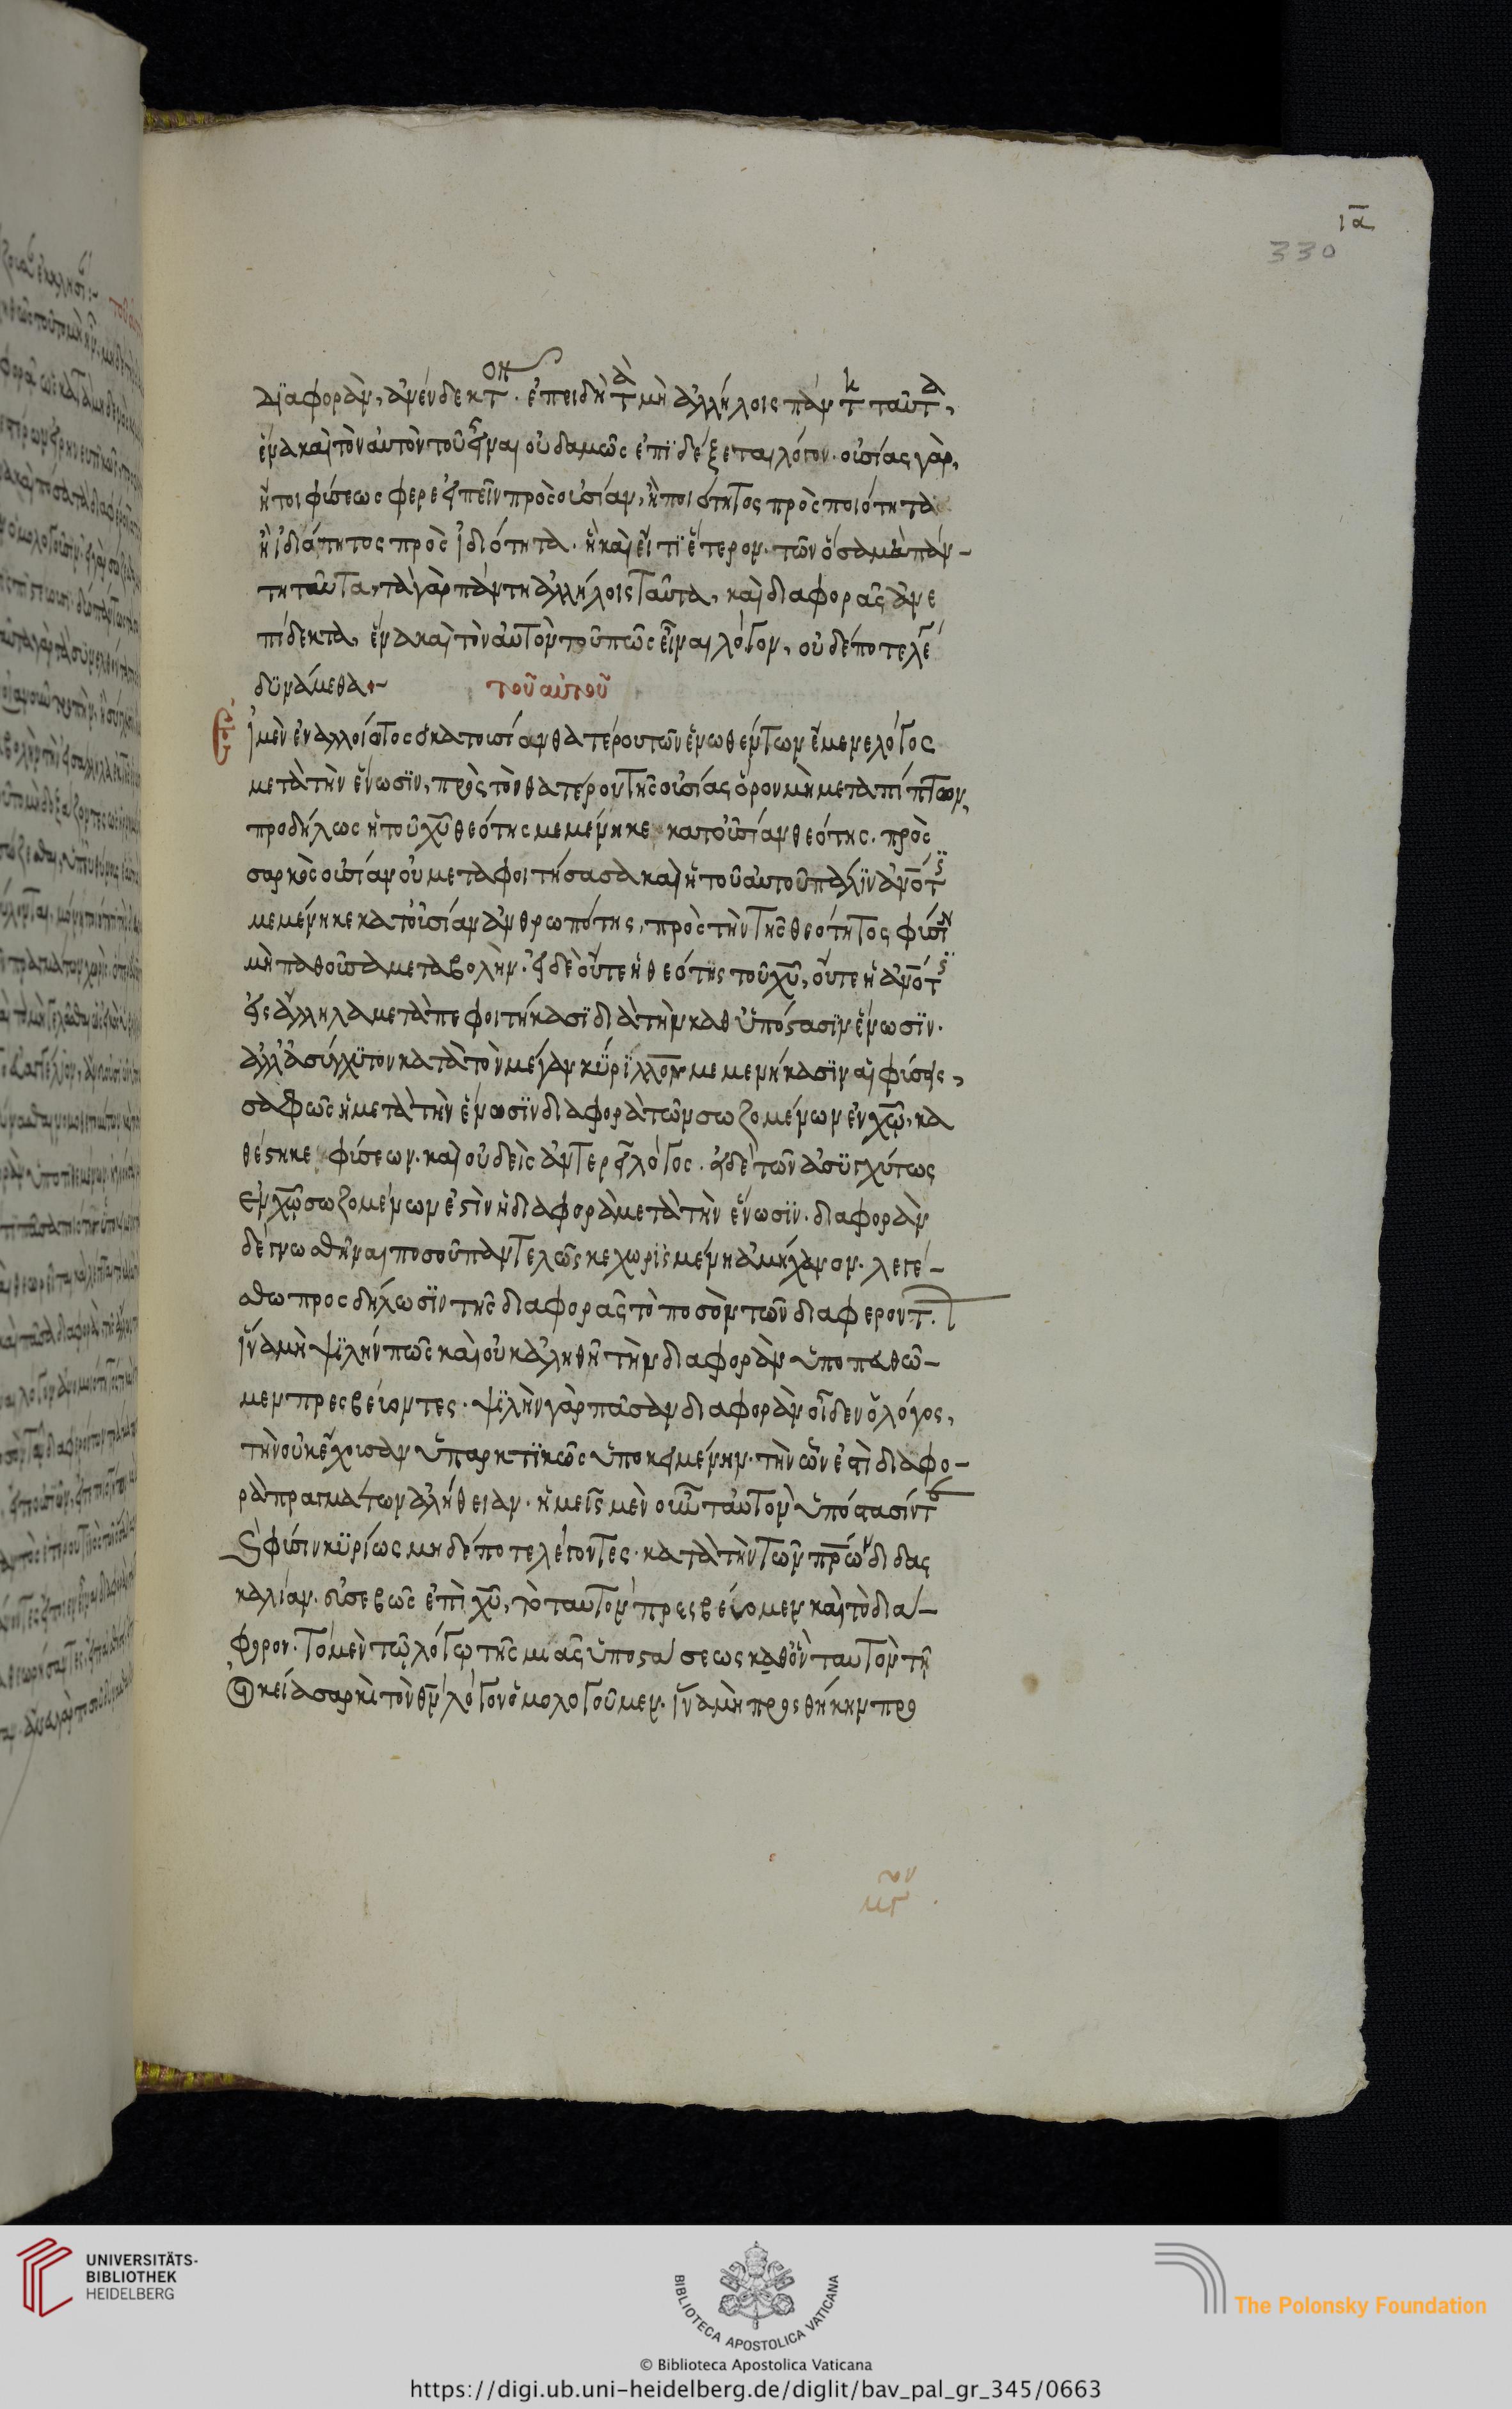 ια
330
διαφορὰν, ἀνένδεκτον. ἐπειδὴ τὰ μὴ ἀλλήλοις πάντη ταῦτα,
ἕνα καὶ τὸν αὐτὸν τοῦ εἶναι οὐδαμῶς ἐπιδέξεται λόγον. οὐσίας γὰρ,
ἤτοι φύσεως φερεειπεῖν πρὸς οὐσίαν, ἢ ποιότητος πρὸς ποιότητα
ἢ ἰδιότητος πρὸς ἰδιότητα. ἢ καὶ εἴ τι ἕτερον. τῶν ὅσα μὴ πάν-
τη ταῦτα, τὰ γὰρ πάντη ἀλλήλοις ταῦτα, καὶ διαφορᾶς ἀνε
πίδεκτα, ἕνα καὶ τὸν αὐτὸν τοῦ πῶς εἶναι λόγον, οὐδέποτε λέγειν
δυνάμεθα
τοῦ αὐτοῦ
Εἰ μὲν ἐναλλοίωτος ὁ κατουσίαν θατέρου τῶν ἑνωθέντων ἔμεινε λόγος
μετὰ τὴν ἕνωσιν, πρὸς τὸν θατέρου τῆς οὐσίας ὅρον μὴ μεταπίπτων,
προδήλως ἡ τοῦ χυ θεότης μεμένηκε κατουσίαν θεότης. πρὸς
σαρκὸς οὐσίαν οὐ μεταφοιτήσασα καὶ ἡ τοῦ αὐτοῦ πάλιν ἀνότης
μεμένηκε κατουσίαν ἀνθρωπότης, πρὸς τὴν τῆς θεότητος φύσιν
μὴ παθοῦσα μεταβολὴν. εἰ δὲ οὔτε ἡ θεότης τοῦ χυ, οὔτε ἡ ἀνότης
εἰς ἄλληλα μεταπεφοιτήκασι διὰ τὴν καθυπόστασιν ἕνωσιν.
ἀλλ' ἀσύγχυτον κατὰ τὸν μέγαν κύριλλον μεμενήκασιν αἱ φύσεις,
σαφῶς ἡ μετὰ τὴν ἕνωσιν διαφορὰ τῶν σωζομένων ἐν χω, κα
θέστηκε φύσεων. καὶ οὐδεὶς ἀντερεῖ λόγος. εἰ δὲ τῶν ἀσυγχύτως
ἐν χω σωζομένων ἐστὶν ἡ διαφορὰ μετὰ τὴν ἕνωσιν. διαφορὰν
δὲ γνωσθῆναι ποσοῦ παντελῶς κεχωρισμένην ἀμήχανον. λεγέ-
σθω προς δήλωσιν τῆς διαφορᾶς τὸ ποσὸν τῶν διαφεροντ.
ἵνα μὴ ψιλήν πῶς καὶ οὐκ ἀληθῆ τὴν διαφορὰν ὑποπαθῶ-
μεν πρεσβεύοντες. ψιλὴν γὰρ πᾶσαν διαφορὰν οἶδεν ὁ λόγος,
τὴν οὐκ ἔχουσαν ὑπαρκτικῶς ὑποκειμένην. τὴν ὧν ἐστὶ διαφο-
ρὰ πραγμάτων ἀλήθειαν. ἡμεῖς μὲν οὖν ταὐτὸν ὑπόστασίν τε
καὶ φύσιν κυρίως μηδέποτε λέγοντες. κατὰ τὴν τῶν πρων διδας
καλίαν. εὐσεβῶς ἐπὶ χυ, τὸ ταυτὸν πρεσβεύομεν καὶ τὸ διά-
φορον. τὸ μὲν τῶ λόγω τῆς μιᾶς ὑποστάσεως καθ' ὃν ταυτὸν τῆ
οἰκεία σαρκὶ τὸν θν λόγον ὁμολογοῦμεν. ἵνα μὴ προσθήκην προ
UNIVERSITÄTS-
BIBLIOTHEK
HEIDELBERG
BIBLIOTECA APOSTOLICA VATICANA
The Polonsky Foundation
© Biblioteca Apostolica Vaticana
https://digi.ub.uni-heidelberg.de/diglit/bav_pal_gr_345/0663